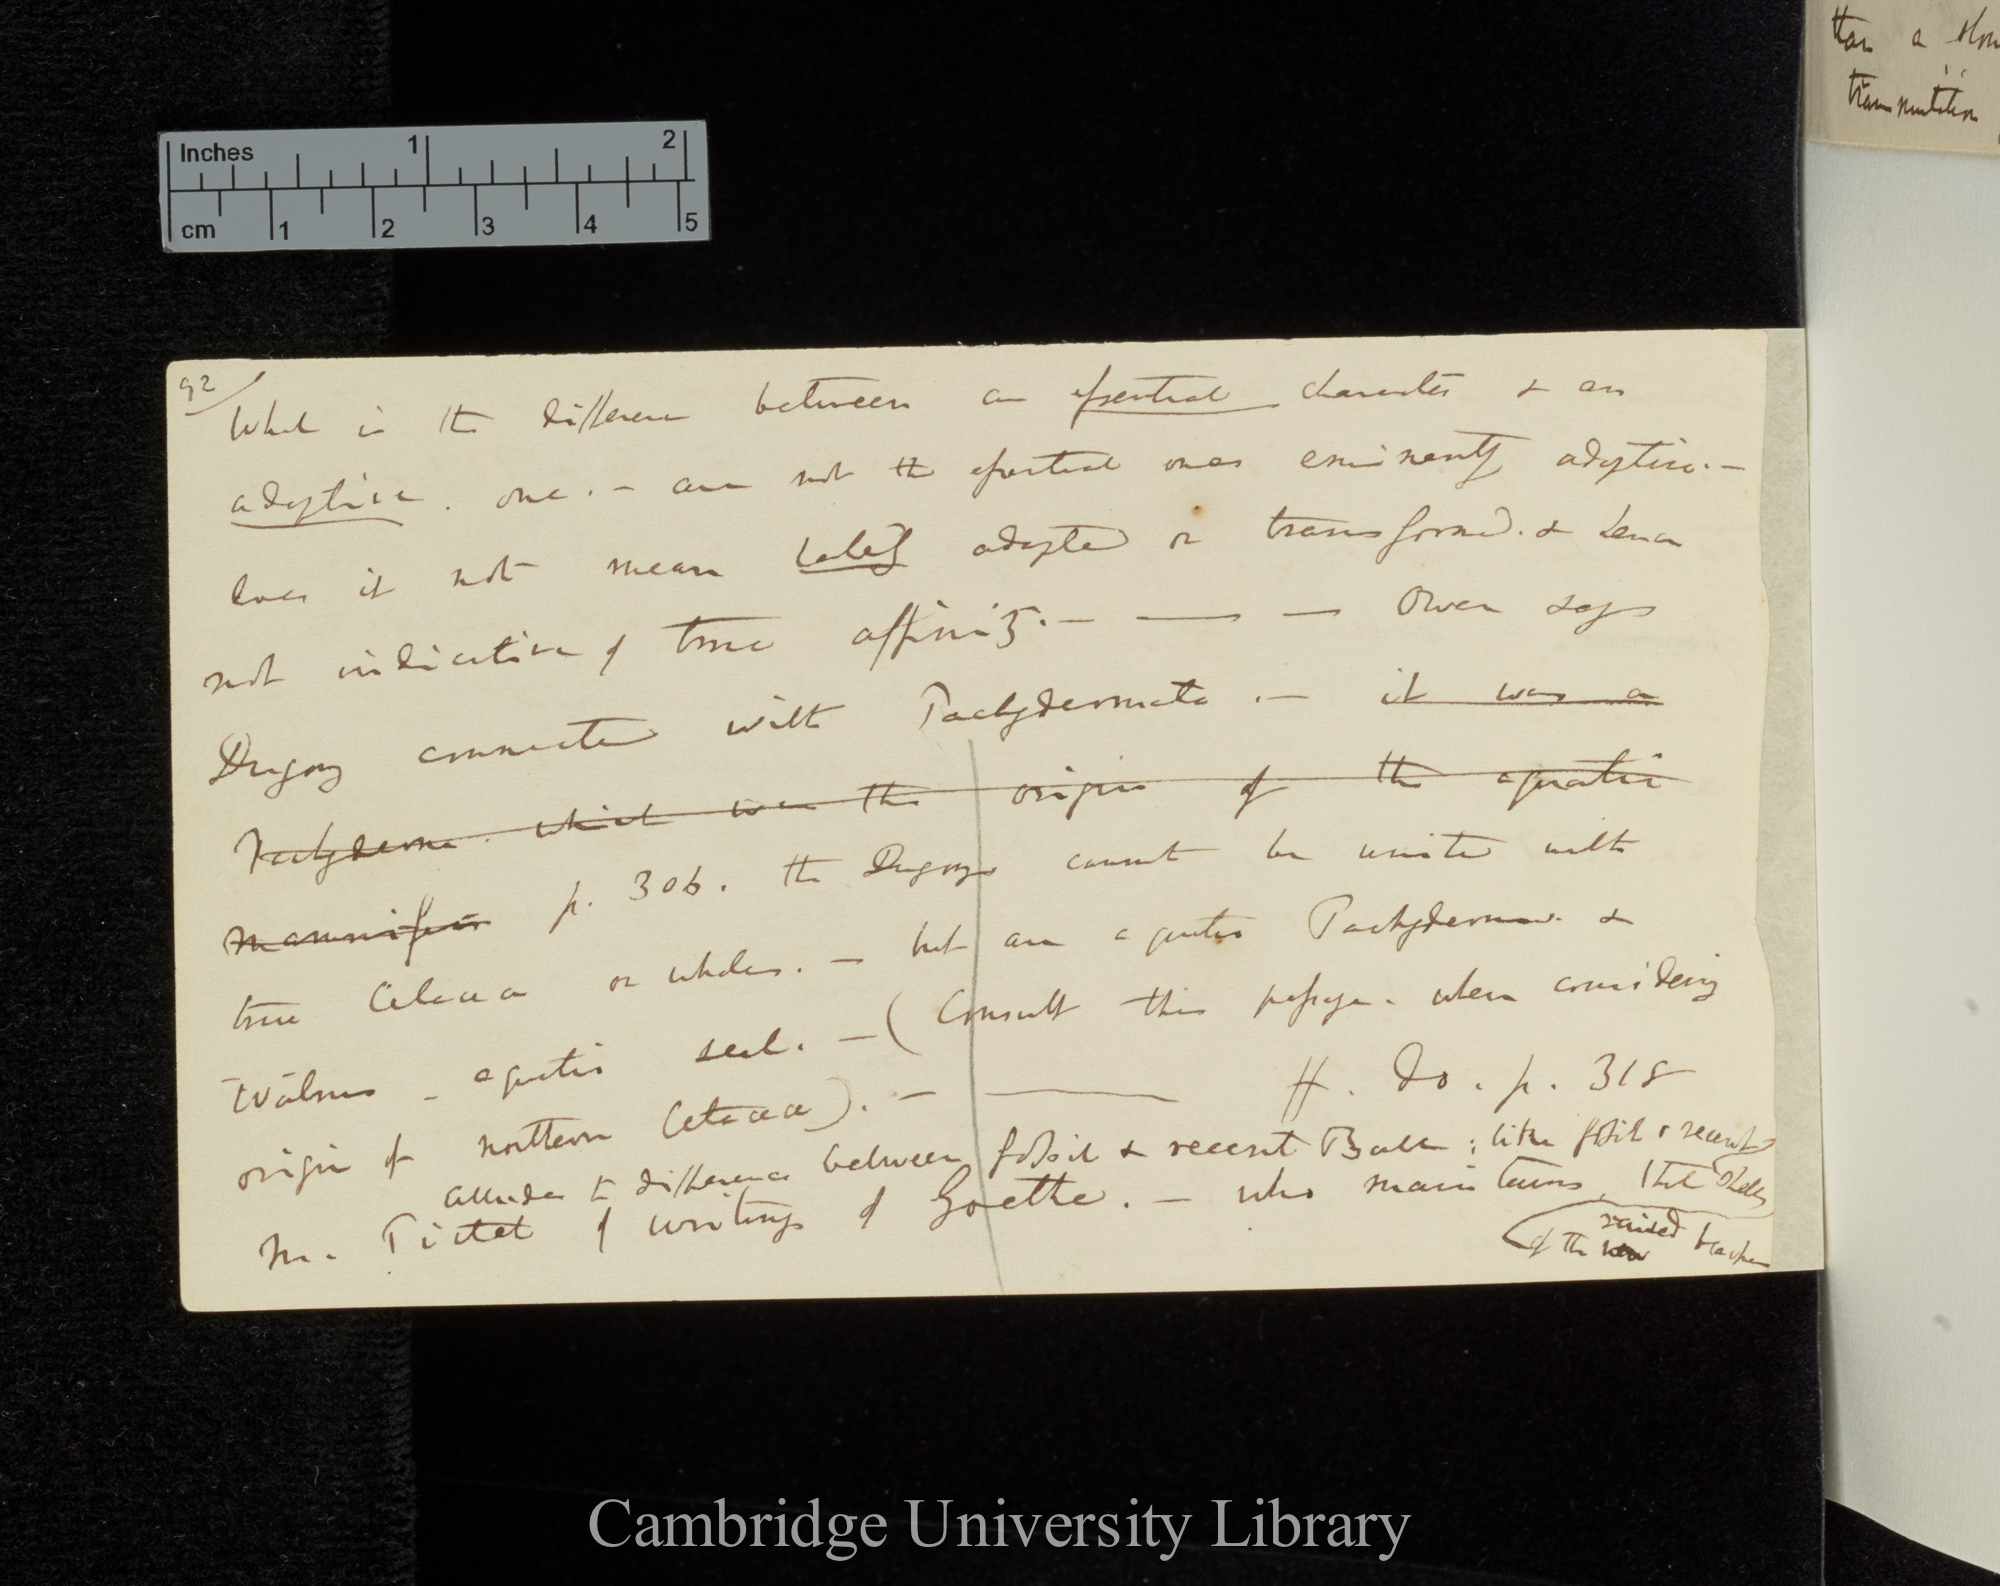 Inches 1 2
cm 1 2 3 4 5
than a slow
transmutation
92
What is the difference between an essential character & an
adaptive. one. — are not the essential ones eminently adaptive. —
does it not mean lately adapted or transformed. & hence
not indicative of true affinity. — — — Owen says
Dugong connected with Pachydermata. — it was a
Pachyderm. which was the origin of the aquatic
mammifers p. 306. the Dugongs cannot be united with
true Cetacea or whales. — but are aquatic Pachyderms. &
Walrus — aquatic seal. — (Consult this passage. when considering
origin of northern Cetacea). — — H. do. p. 318
alludes to difference between fossil & recent Bull: like fossil & recent shells
of the raised beaches
M. Pictet of writings of Goethe. — who maintains, that
Cambridge University Library